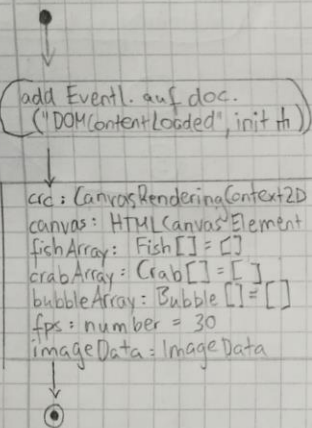 add Eventl. auf doc.
("DOMContentLoaded", init ⋔)
crc : CanvasRenderingContext2D
canvas : HTMLCanvasElement
fishArray : Fish[] = []
crabArray : Crab[] = []
bubbleArray : Bubble[] = []
fps : number = 30
imageData : ImageData